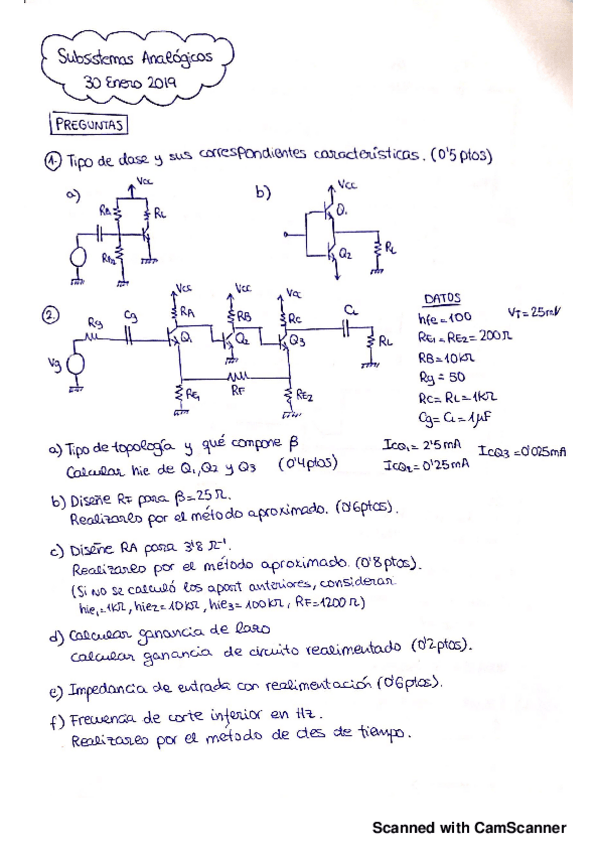 Subsistemas Analógicos
30 Enero 2019
PREGUNTAS
1. Tipo de clase y sus correspondientes características. (0'5 ptos)
a)
Vcc
RB1
RL
RB2
b)
Vcc
Q1
Q2
RL
2.
Vg
Rg
Cg
Vcc
RA
Q1
RE1
Vcc
RB
Q2
RF
Vcc
RC
Q3
RE2
CL
RL
DATOS
hfe = 100 VT = 25mV
RE1 = RE2 = 200Ω
RB = 10KΩ
Rg = 50
RC = RL = 1KΩ
Cg = CL = 1μF
ICQ1 = 2'5mA ICQ3 = 0'025mA
ICQ2 = 0'25mA
a) Tipo de topología y qué compone β
Calcular hie de Q1, Q2 y Q3 (0'4ptos)
b) Diseñe RF para β=25Ω.
Realizarlo por el método aproximado. (0'6ptos).
c) Diseñe RA para 3'8 Ω⁻¹.
Realizarlo por el método aproximado. (0'8ptos).
(Si no se calculó los apart anteriores, consideran
hie1=1KΩ, hie2=10KΩ, hie3=100KΩ, RF=1200Ω)
d) Calcular ganancia de lazo
Calcular ganancia de circuito realimentado (0'2ptos).
e) Impedancia de entrada con realimentación (0'6ptos).
f) Frecuencia de corte inferior en Hz.
Realizarlo por el método de ctes de tiempo.
Scanned with CamScanner